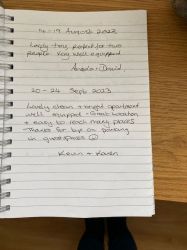 14 - 19 August 2023
Lovely tiny perfect for two
people very well equipped
Angela + David
20 - 24 Sept 2023
Lovely clean + bright apartment
well equipped - Great location
+ easy to reach many places
Thanks for tip on parking
in guestspaces ☺
Kevin + Karen